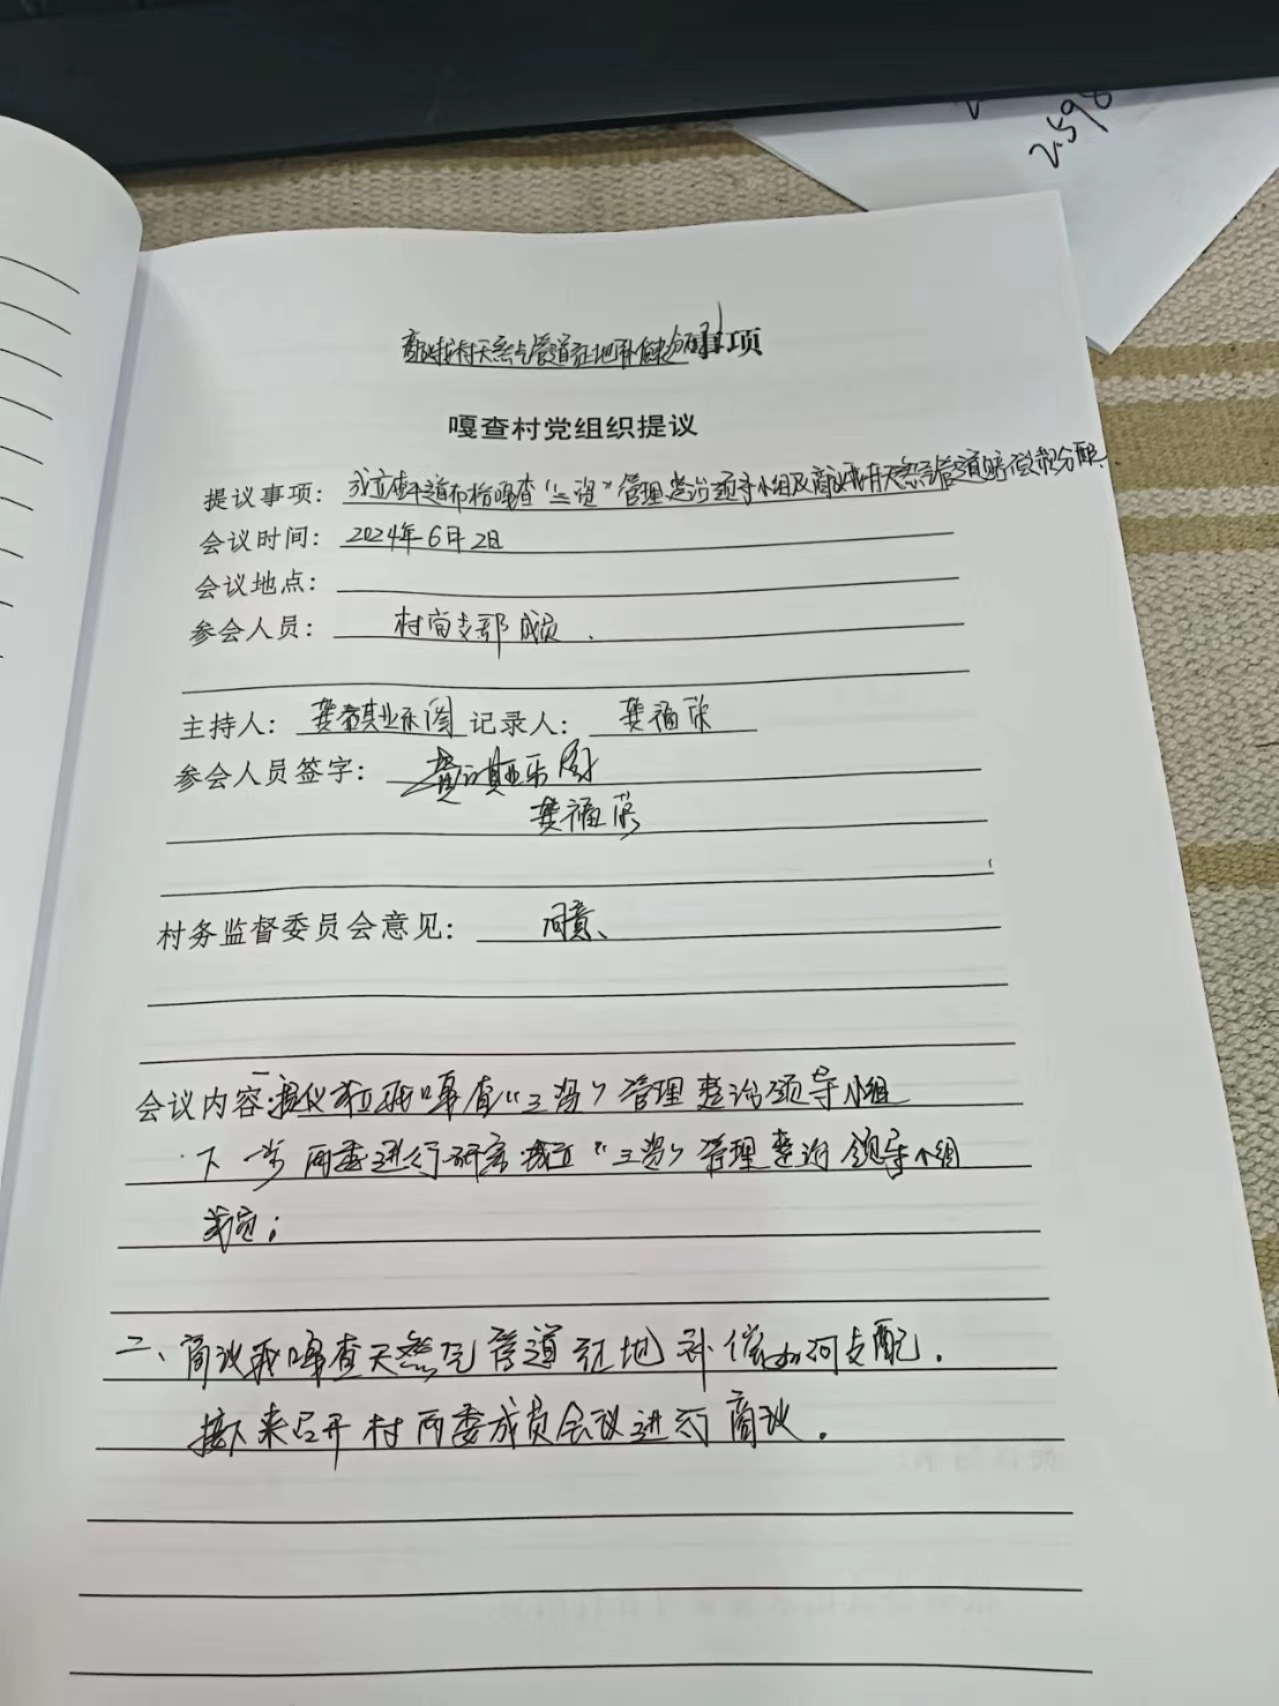 2598
村天然气管道征地补偿款分配事项
嘎查村党组织提议
提议事项：成立 嘎查“三资”管理整治领导小组及商议我村天然气管道赔偿款分配
会议时间：2024年6月2日
会议地点：
参会人员：村党支部成员.
主持人： 乐图 记录人：龚福荣
参会人员签字： 乐图
龚福荣
村务监督委员会意见：同意、
会议内容：一提议成立我嘎查“三资”管理整治领导小组
下一步两委进行研究成立“三资”管理整治领导小组
成员；
二、商议我嘎查天然气管道征地补偿如何支配.
接下来召开村两委成员会议进行商议.